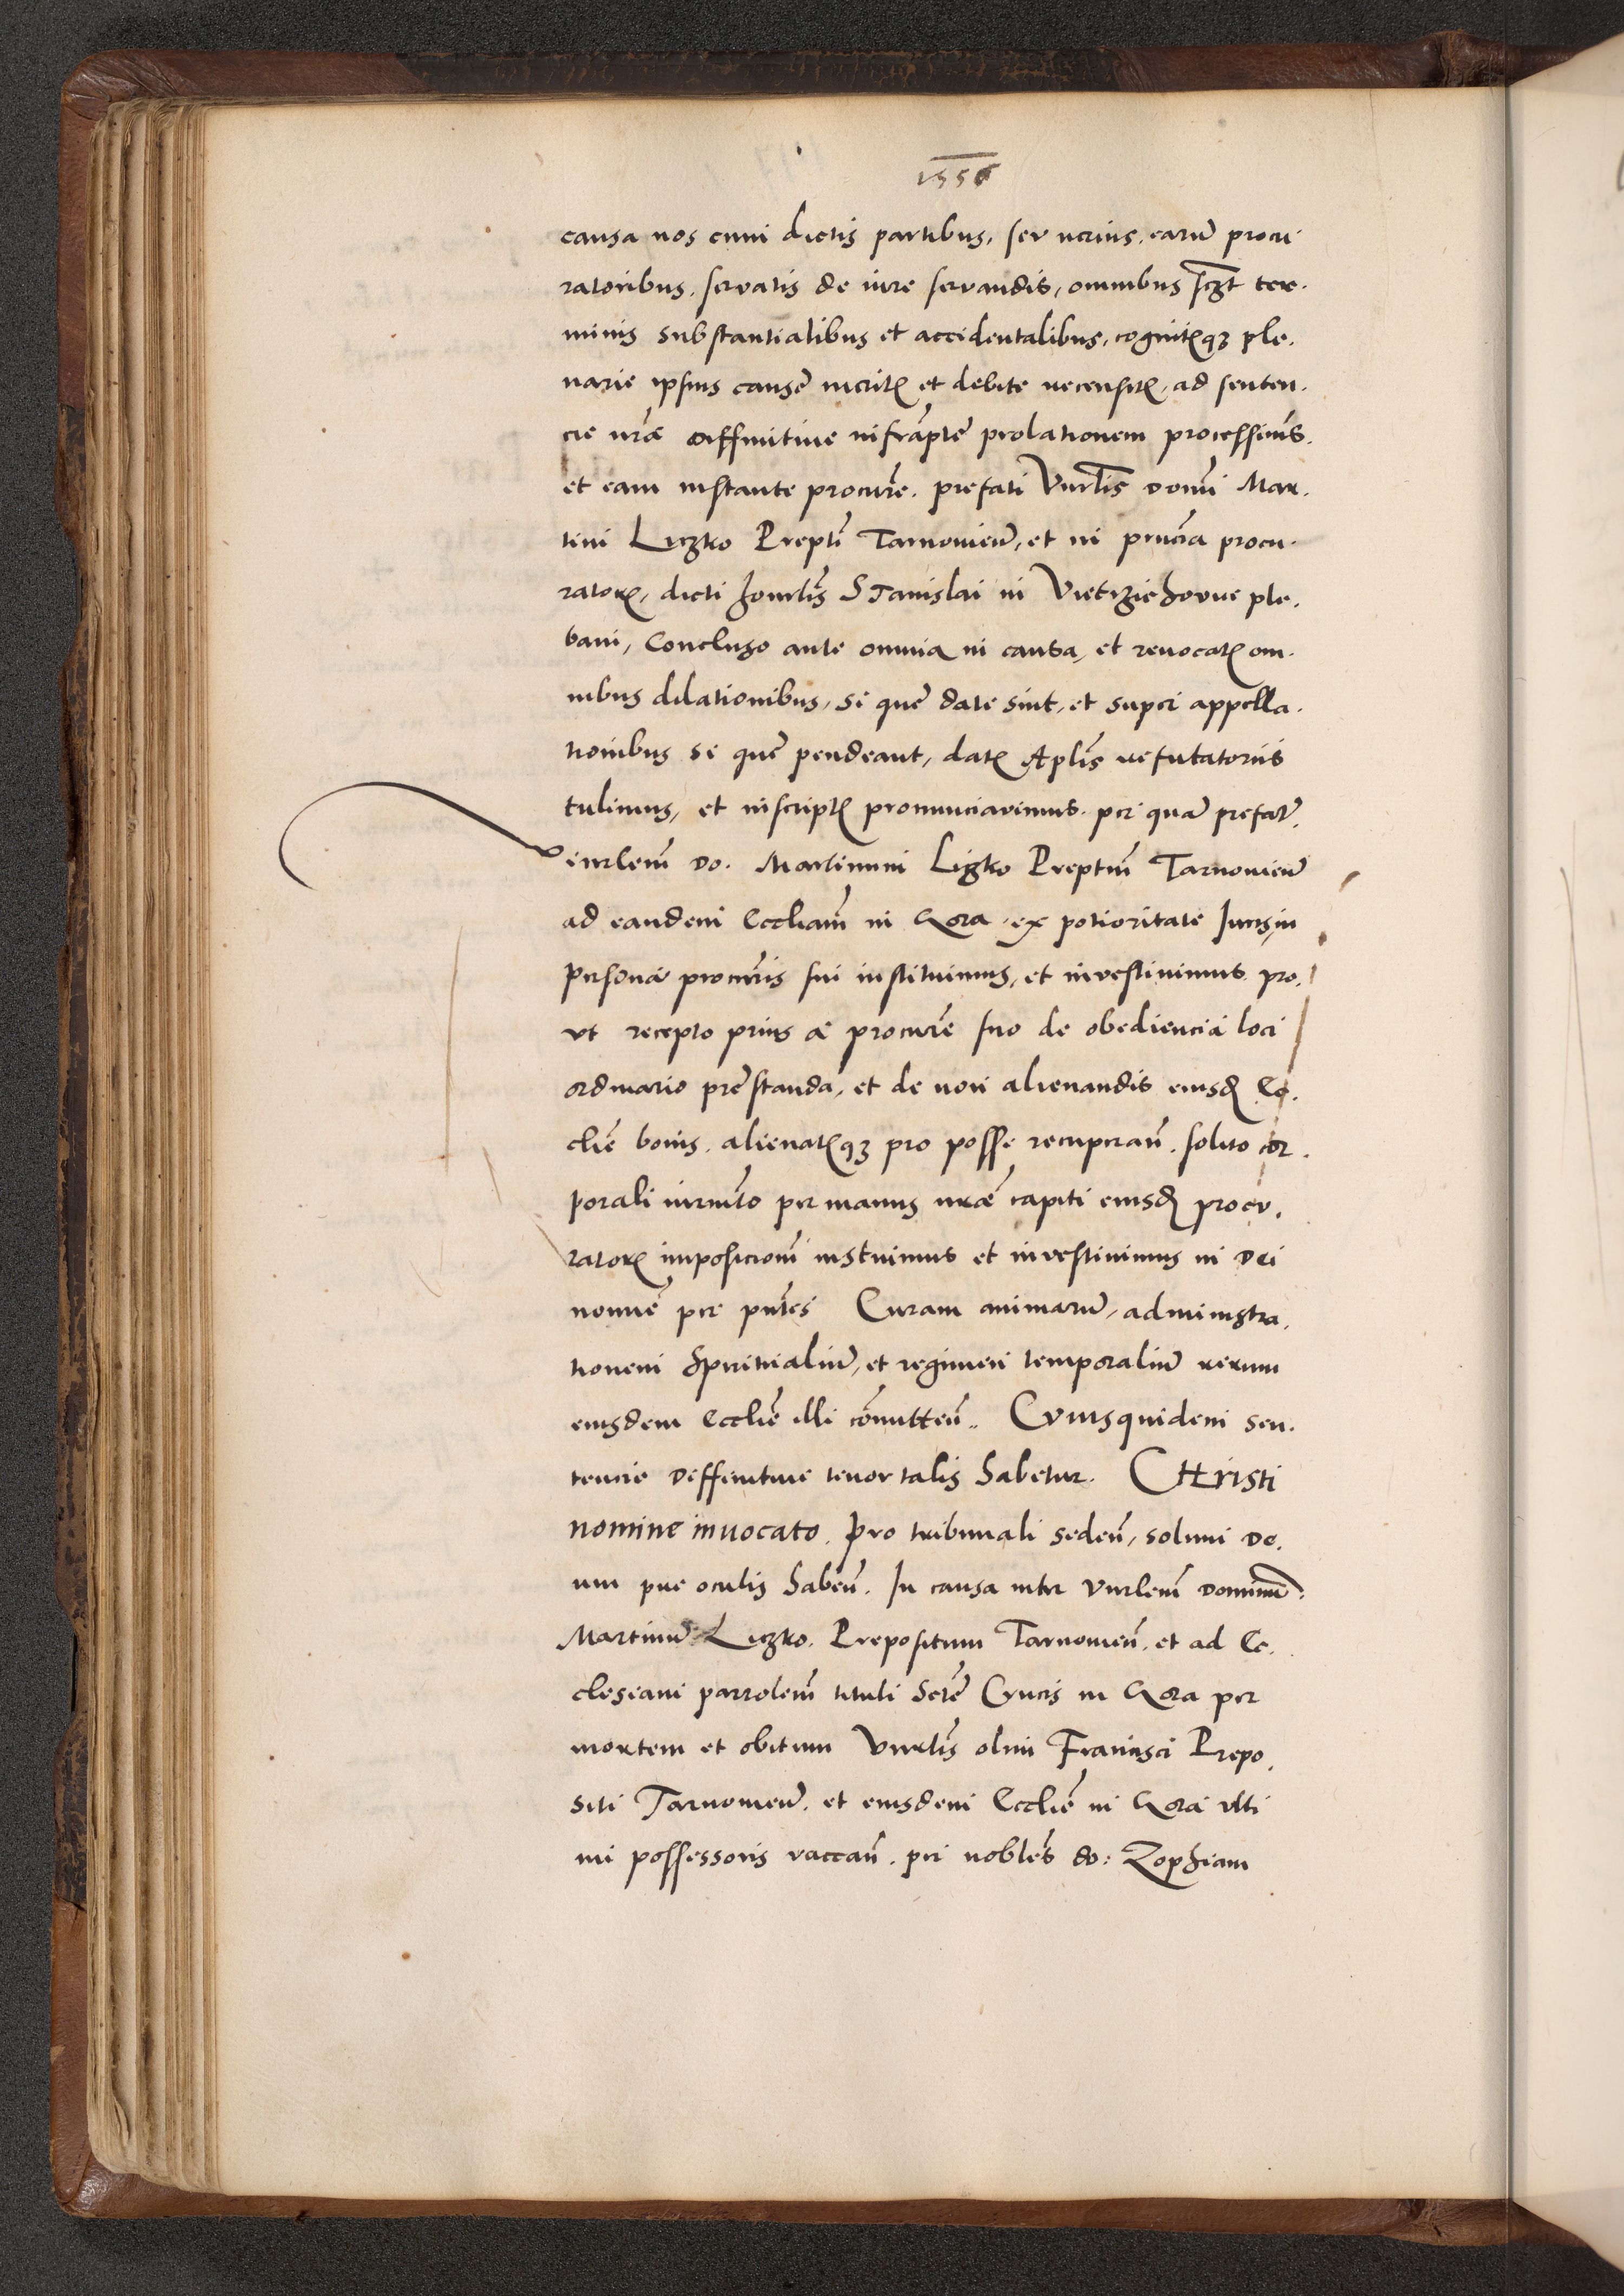 1556
causa nos cum dictis partibus, seu verius earum̄ procu
ratoribus, servatis de iure servandis, omnibus sczt ter.
minis substantialibus et accidentalibus, cognitisqз ple.
narie ipsius causę meritis et debite recensitis, ad senten.
cie nr̄ae diffinitive infrāpte prolationem processimus.
et eam instante procur̄e. prefati Vnrlīs domī Mar.
tini Liczko Prepti Tarnovien̄, et in princīa procu.
ratoris, dicti honrlīs Stanislai in Vietrzichovue ple.
bani, Concluso ante omnia in causa, et revocatis om.
nibus dilationibus, si quę date sint, et super appella.
tionibus si quę pendeant, datis Aplīs refutatoriis
tulimus, et in scriptis pronunciavimus. per quā prefat̄
vnrlem̄ do. Martinum Ligzko Preptum̄ Tarnovien̄
ad eandem Eccliam̄ in Gora ex potioritate Iuris, in
persona procur̄is sui instituimus, et investivimus. pro.
ut recepto prius a procur̄e suo de obediencia loci
ordinario pręstanda, et de non alienandis eiusd Ec.
clię bonis, alienatisqз pro posse recuperan̄. solito cor.
porali iurmto per manus nr̄ae capiti eiusd procu.
ratoris imposicion̄ instuimus et investivimus in Dei
nomīe per pntes Curam animarum̄, administra.
tionem Spiritualium̄, et regimen temporalium̄ rerum
eiusdem Ecclię illi cōmitten̄. Cuiusquidem sen.
tencie diffinitive tenor talis habetur. CHristi
nomine invocato. pro tribunali seden̄, solum De.
um prę oculis haben̄. In causa inter Vnrlem̄ Dominū.
Martinū Liczko. Prepositum Tarnovien̄. et ad Ec.
clesiam parrolem̄ tituli Sctę Crucis in Gora per
mortem et obitum Vnrlīs olim Francisci Prepo.
siti Tarnovien̄. et eiusdem Ecclię in Gora vlti
mi possessoris vaccan̄. per noblēs do: Zophiam